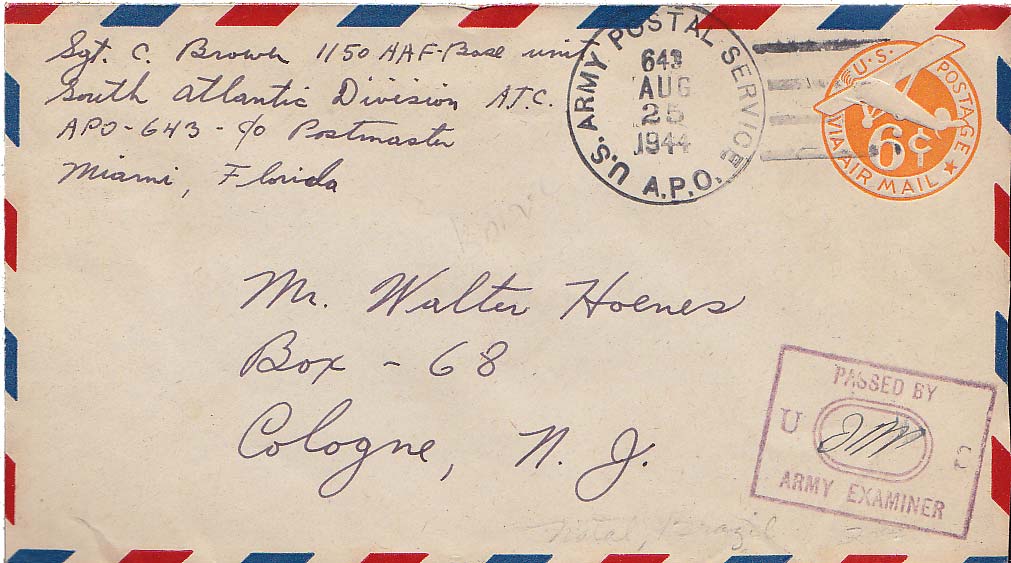 Sgt. C. Brower 1150 AAF-Base unit
South Atlantic Division A.T.C.
APO-643-c/o Postmaster
Miami, Florida
U.S. ARMY POSTAL SERVICE
643
AUG
25
1944
A.P.O.
U.S. POSTAGE
6¢
VIA AIR MAIL
Mr. Walter Hoenes
Box - 68
Cologne, N. J.
PASSED BY
U
ARMY EXAMINER
Natal, Brazil